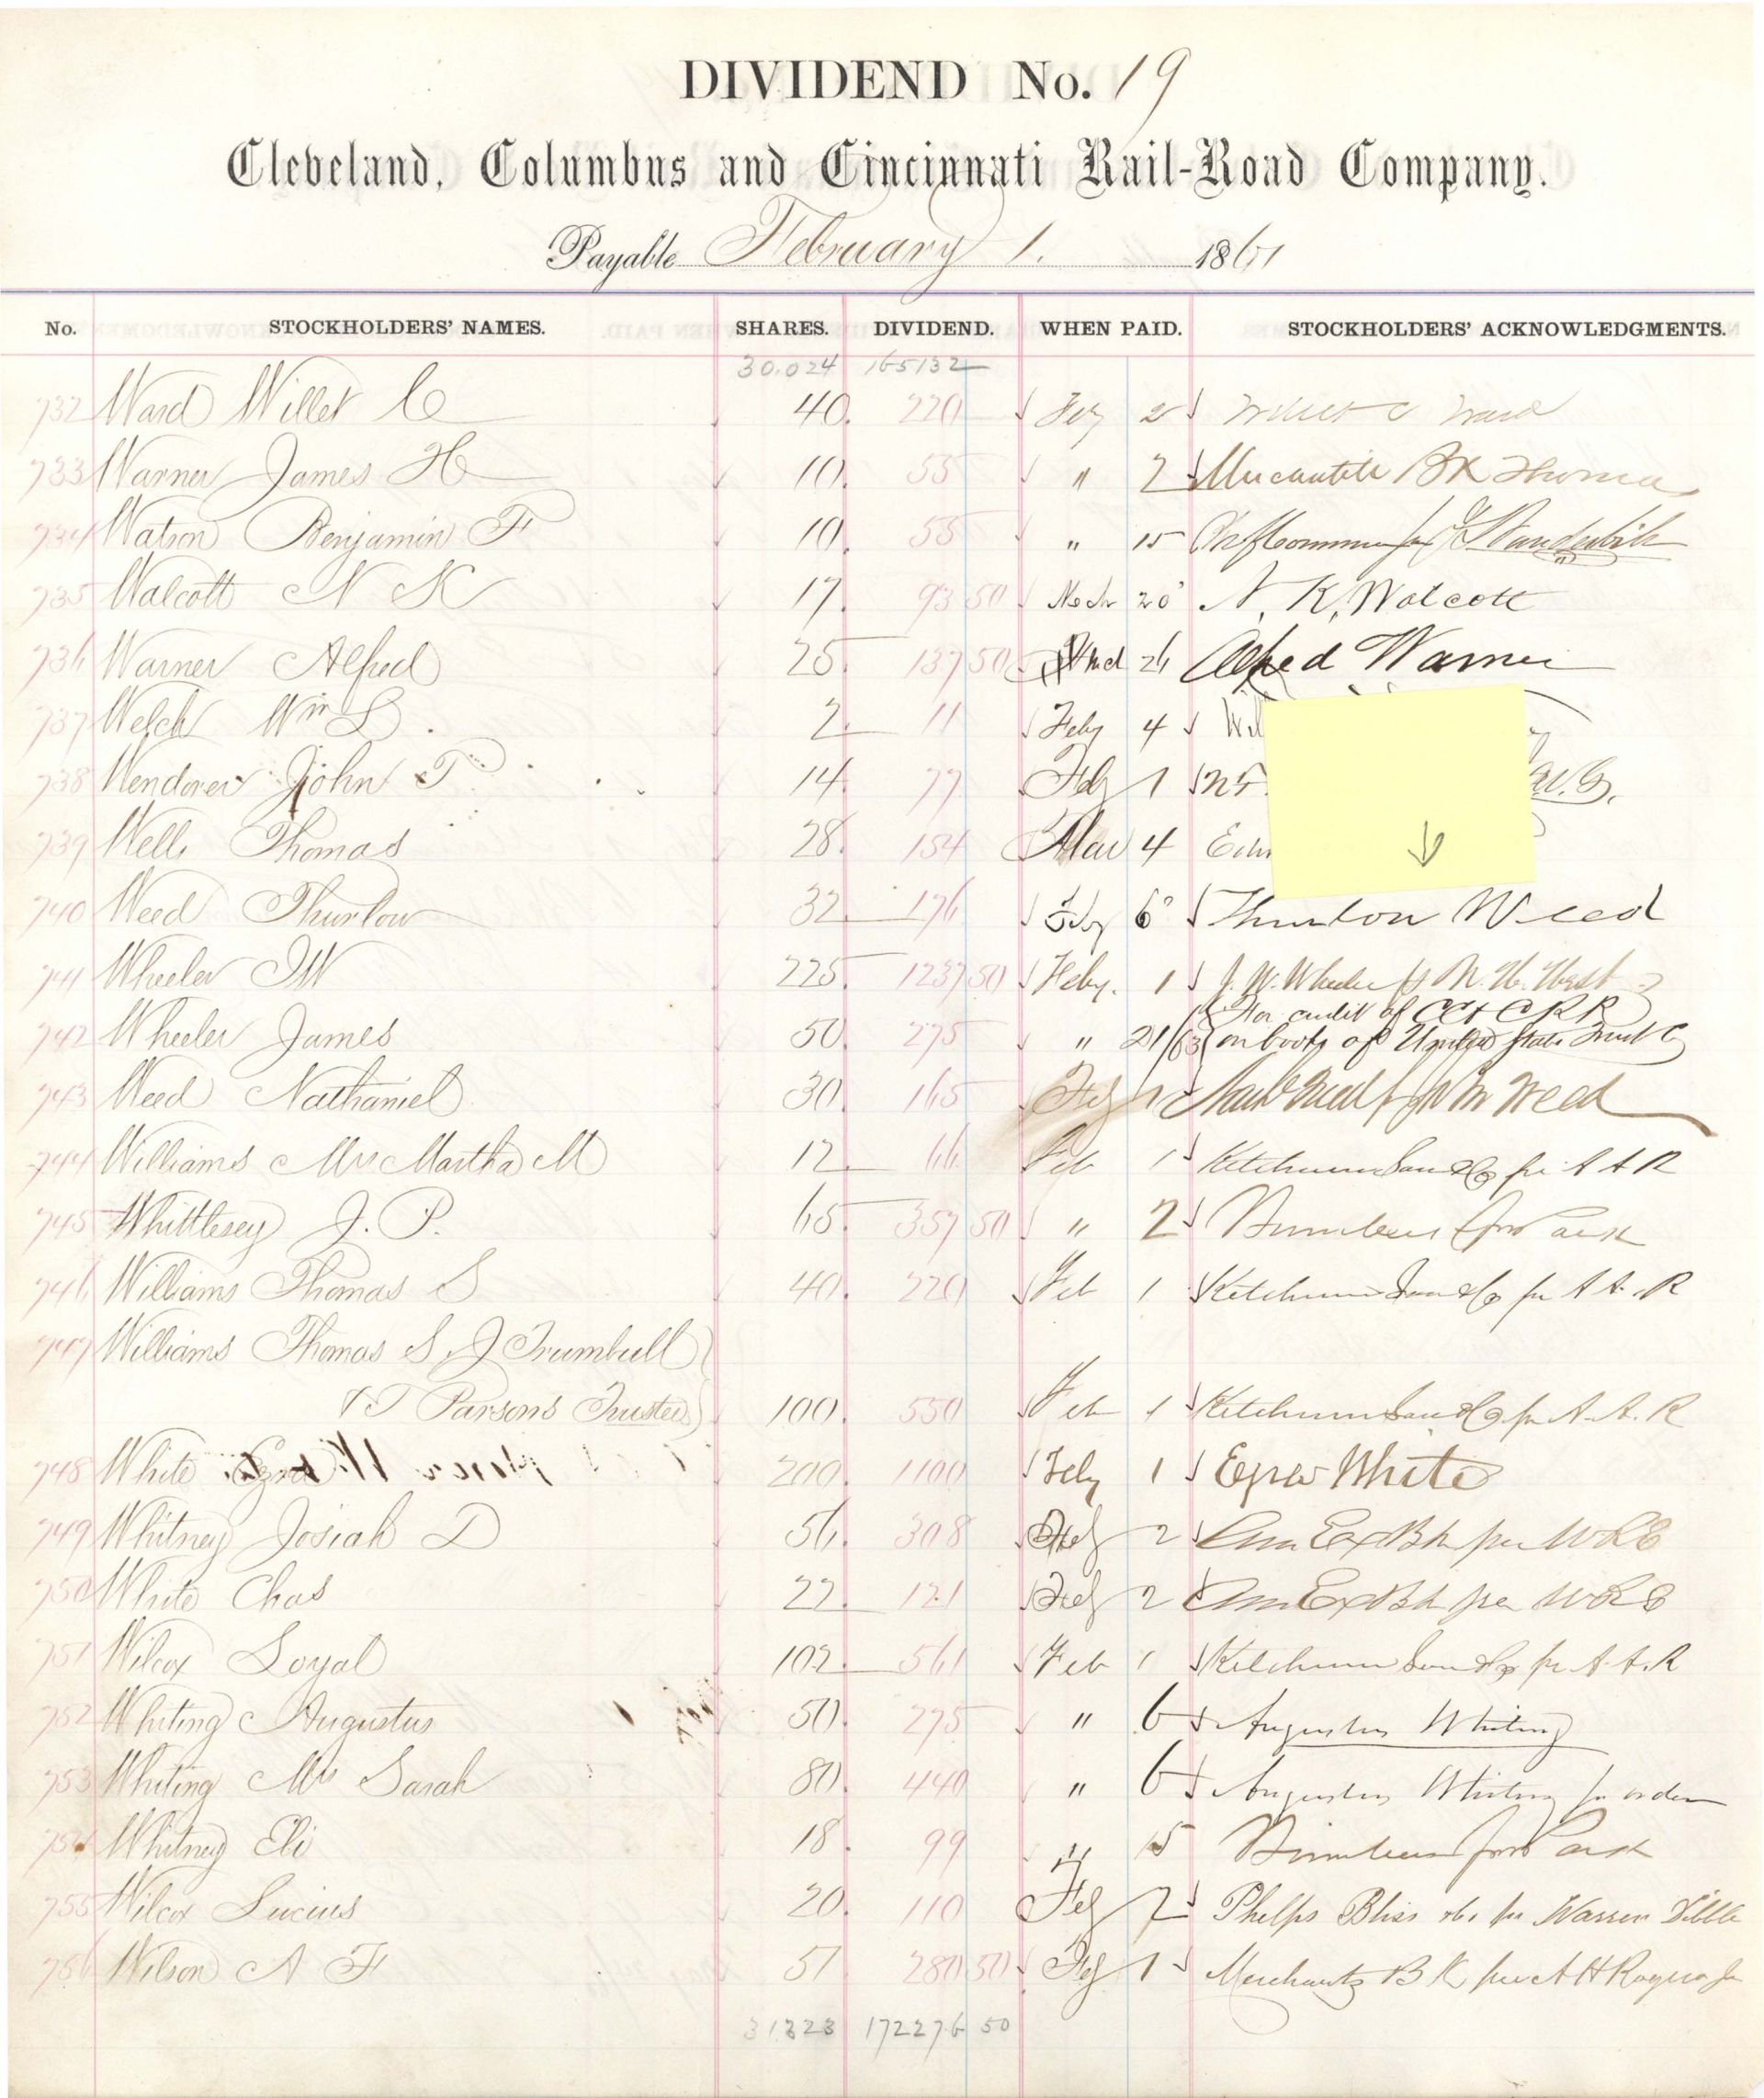 DIVIDEND No. 19
Cleveland, Columbus and Cincinnati Rail-Road Company.
Payable February 1. 1861
No. STOCKHOLDERS' NAMES. SHARES. DIVIDEND. WHEN PAID. STOCKHOLDERS' ACKNOWLEDGMENTS.
30.024 165132
732 Ward Willet C 40. 220 Feby 2 Willet C Ward
733 Warner James H 10. 55 " 2 Mercantile Bk Thomas
734 Watson Benjamin F 10. 55 " 15 Vanderbilt
735 Walcott N K 17. 93 50 20 N. K. Walcott
736 Warner Alfred 25. 137 50 26 Alfred Warner
737 Welch Wm L. 2. 11 Feby 4 Wil
738 Wendover John T 14. 77 Feb 1
739 Wells Thomas 28. 154 Mar 4 Edw
740 Weed Thurlow 32. 176 Feby 6 Thurlow Weed
741 Wheeler J W 225 1237 50 Feby. 1 J. W. Wheeler
For credit of CC & C R R
742 Wheeler James 50. 275 " 21/63 on books of United State Trust C
743 Weed Nathaniel 30. 165 Feb 1 Weed
744 Williams Mrs Martha M 12. 66 Feb 1 Ketchum Son & Co per A A R
745 Whittlesey J. P. 65. 357 50 " 2
746 Williams Thomas S 40. 220 Feb 1 Ketchum Son & Co per A A. R
747 Williams Thomas S, J Trumbull
& J Parsons Trustees 100. 550 Feb 1 Ketchum Son & Co per A. A. R
748 White 200. 1100 Feby 1 White
749 Whitney Josiah D 56. 308 Feb 2 Am Ex Bk per WRE
750 White Chas 22. 121 Feb 2 Am Ex Bk per WRE
751 Wilcox Loyal 102. 561 Feb 1 Ketchum Son & Co per A. A. R
752 Whiting Augustus 50. 275 " 6 Augustus Whiting
753 Whiting Mrs Sarah 80. 440 " 6 Augustus Whiting per order
754 Whitney Eli 18. 99 " 15
755 Wilcox Lucius 20. 110 Feb 7 Phelps Bliss &c. per Warren
756 Wilson A F 51 280 50 Feb 1 Merchants B K per A H Rogers Jr
31323 172276 50